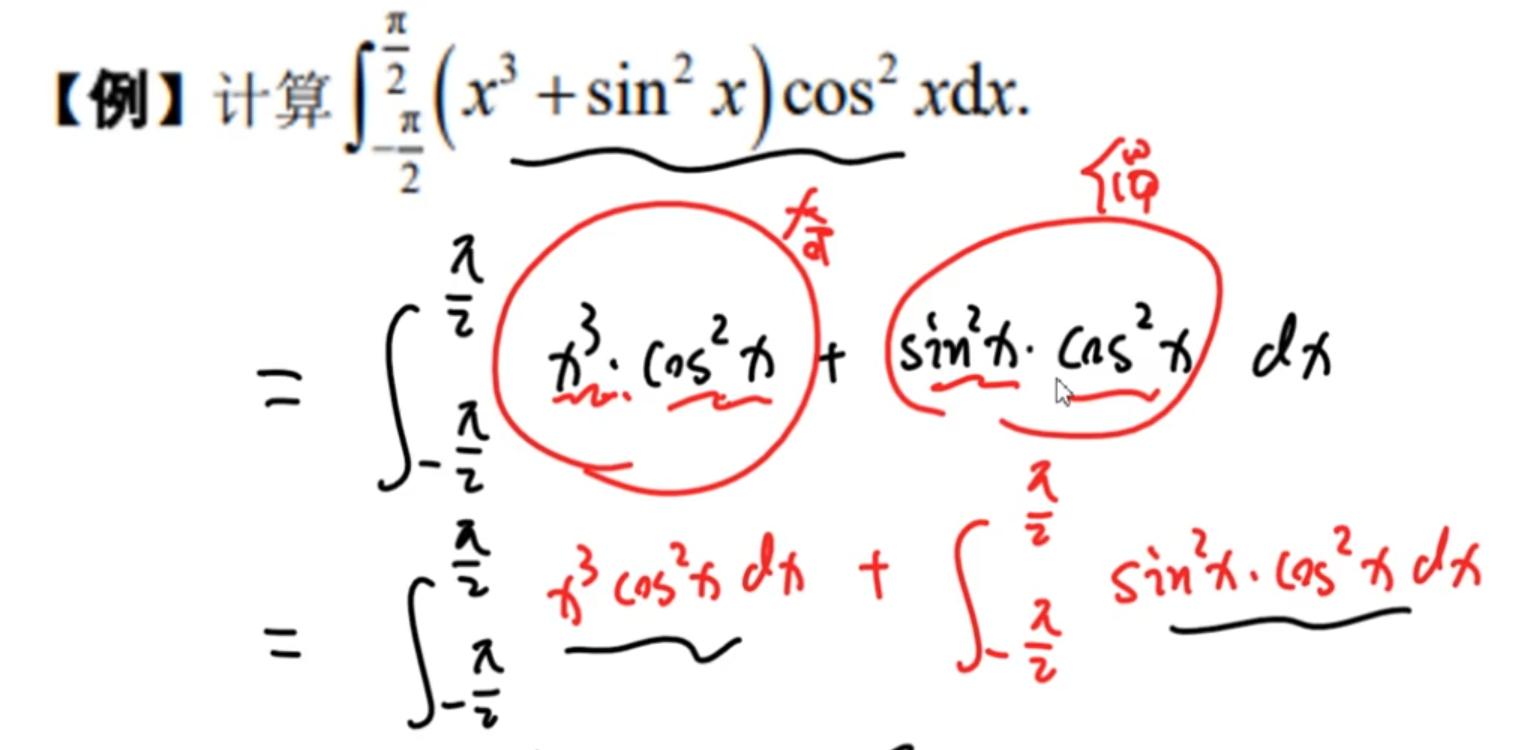 【例】计算 ∫_{-π/2}^{π/2} (x³ + sin² x) cos² x dx.
奇 偶
= ∫_{-π/2}^{π/2} x³ · cos² x + sin² x · cos² x dx
= ∫_{-π/2}^{π/2} x³ cos² x dx + ∫_{-π/2}^{π/2} sin² x · cos² x dx